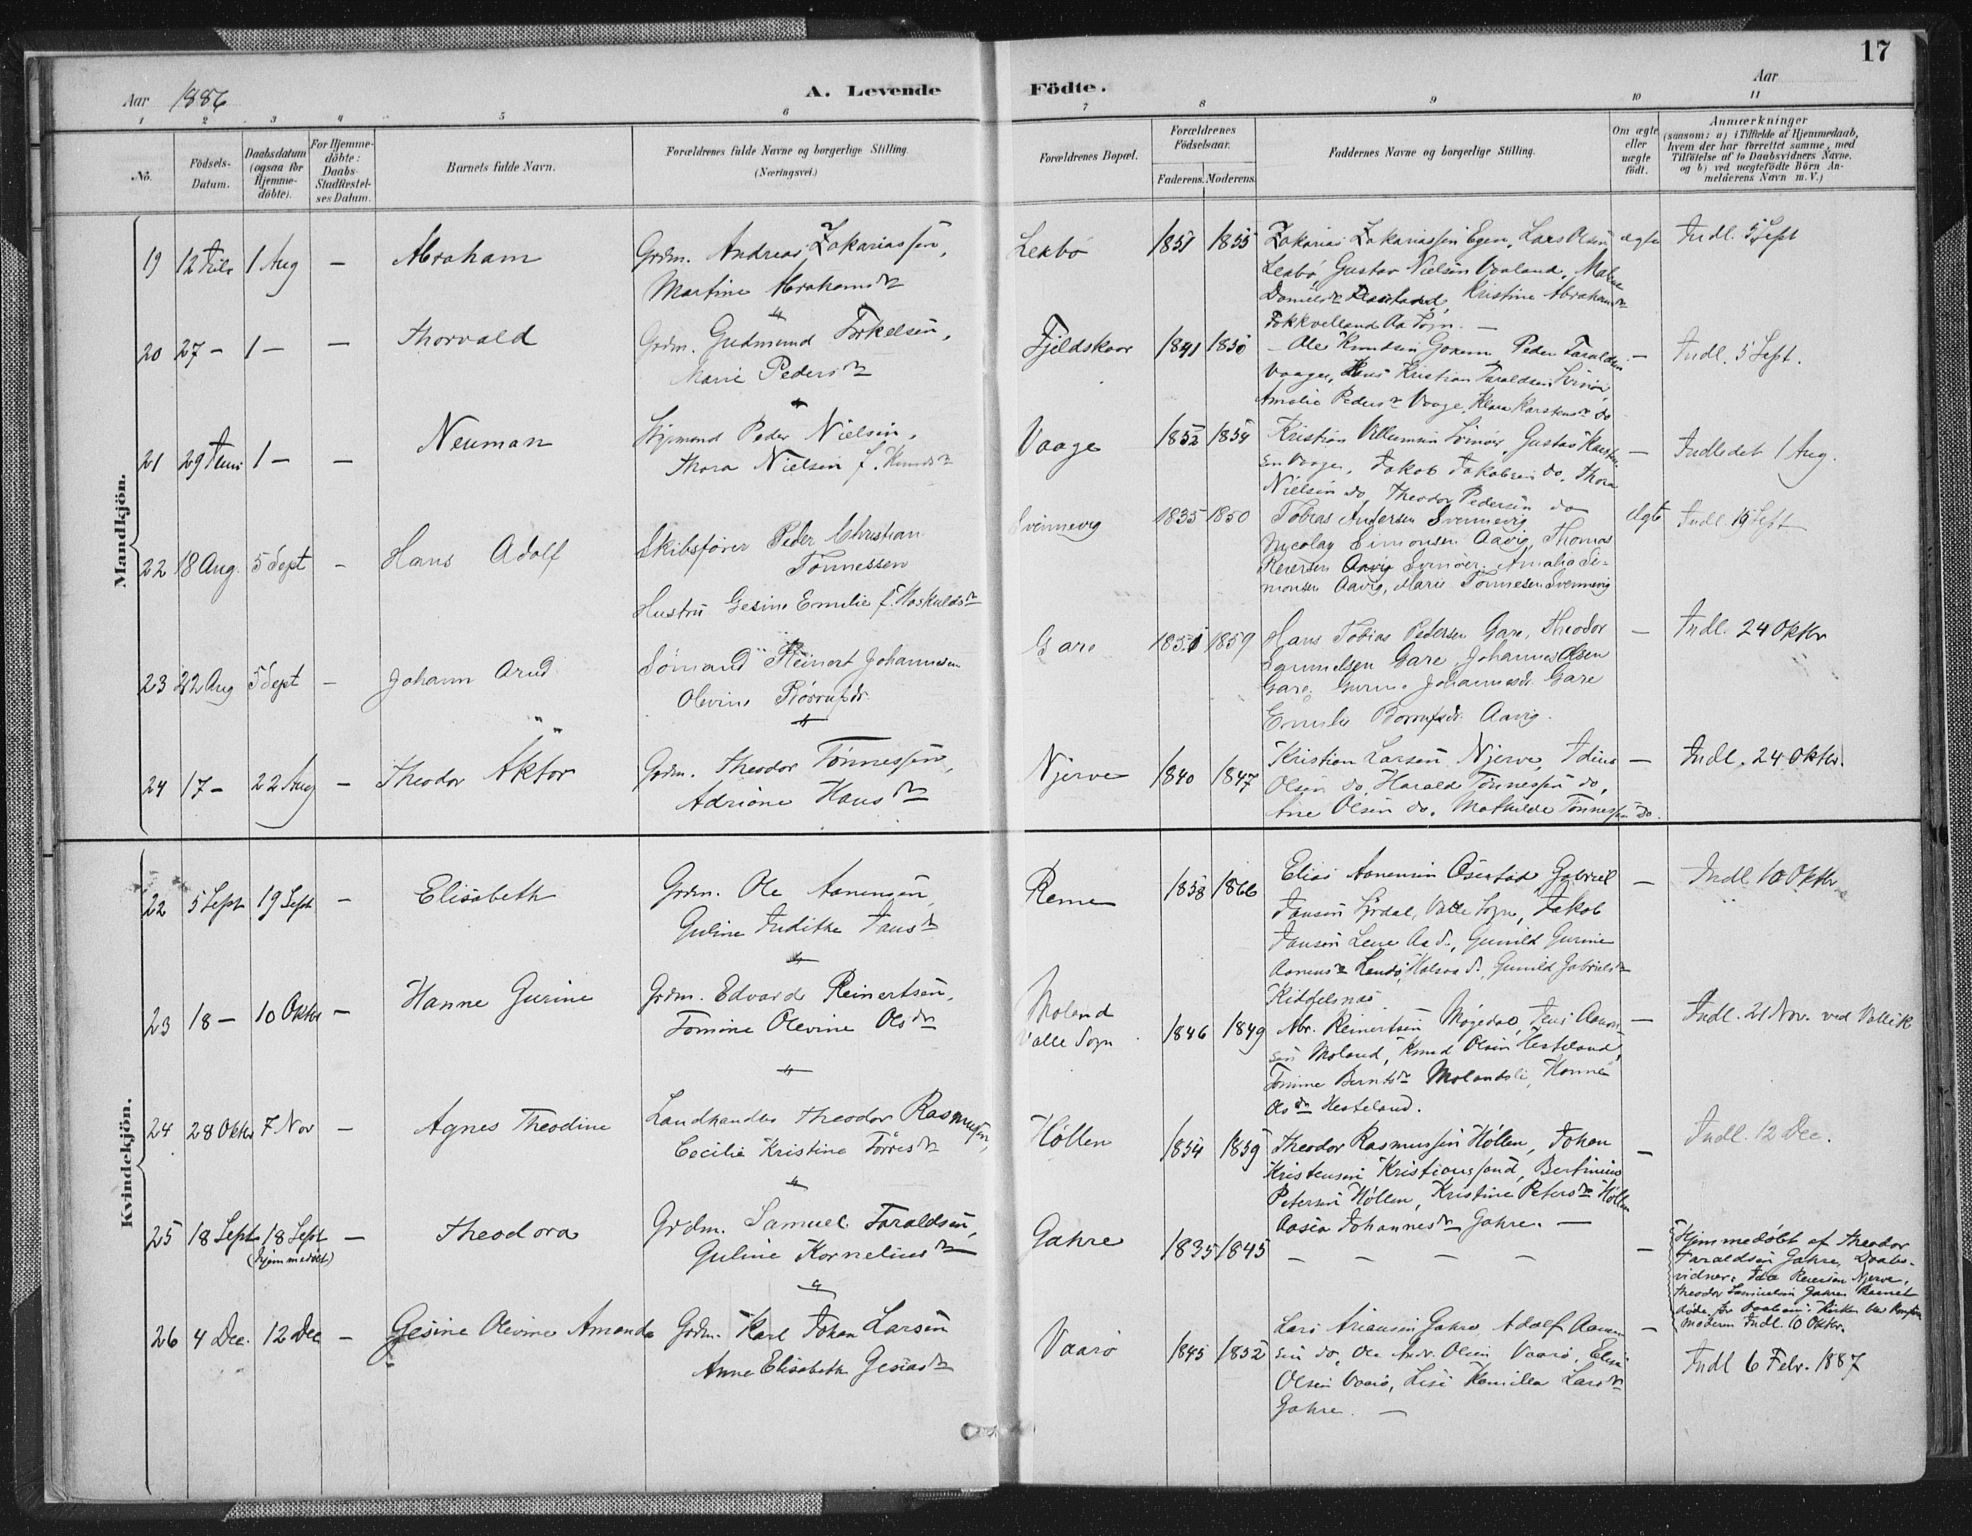 17
Aar 1886
A. Levende Födte.
Aar
1 2 3 4 5 6 7 8 9 10 11
No.
Födsels-Datum.
Daabsdatum (ogsaa for Hjemmedöbte).
For Hjemmedöbte: Daabs-Stadfæstelses Datum.
Barnets fulde Navn.
Forældrenes fulde Navne og borgerlige Stilling (Næringsvei.)
Forældrenes Bopæl.
Forældrenes Födselsaar.
Faderens. Moderens.
Faddernes Navne og borgerlige Stilling.
Om ægte eller uægte födt.
Anmærkninger
(saasom: a) i Tilfælde af Hjemmedaab, hvem der har forrettet samme, med Tilföielse af to Daabsvidners Navne, og b) ved uægtefödte Börn Anmelderens Navn m. V.)
Mandkjön.
19 12 Juli 1 Aug — Abraham
Grdm. Andreas Zakariassen,
Martine Abrahamsdr
Lexbø 1851 1855
Zakarias Zakariassen Egen, Lars Olsen
Lexbø, Gustav Nielsen Vaaland,
Kristine Abrahamsdr
ægte
Indl. 5 Sept
20 27 — 1 — — Thorvald
Grdm. Gudmund Torkelsen,
Marie Pedersdr
Fjeldskaar 1841 1850
Ole Knudsen Peder Taraldsen
Vaage, Kristian Taraldsen Svinør,
Amalie Pedersdr Vaage, Klara Karstensdr do
—
Indl. 5 Sept.
21 29 Juni 1 — — Neuman
Styrmand Peder Nielsen,
Thora Nielsen f. Knudsdr
Vaage 1852 1854
Kristian Villumsen Svinør, Gustav Karstensen Vaage, Jakob Jakobsen do, Thora
Nielsen do, Theodor Pedersen do
—
Indledet 1 Aug.
22 18 Aug. 5 Sept — Hans Adolf
Skibsfører Peder Christian
Tønnessen
Hustru Gesine Emilie f. Haskuldsdr
Svennevig 1835 1850
Tobias Andersen Svennevig
Nycolay Simonsen Aavig, Thomas
Reiersen Svinøer, Amalia Simonsen Aavig, Marie Tønnesen Svennevig
Ægte
Indl. 19 Sept
23 22 Aug 5 Sept — Johann Arnd
Sømand Reinert Johannesen
Olevine Børrufsdr.
Gare 1851 1859
Hans Tobias Pedersen Gare, Theodor
Samuelsen Gare, Johannes Olsen
Gare, Johannesdr. Gare
Emilie Børrufsdr. Aavig.
—
Indl. 24 Oktbr
24 17 — 22 Aug — Theodor Aktor
Grdm. Theodor Tønnessen,
Adriane Hansdr
Njerve 1840 1847
Kristian Larsen Njerve,
Olsen do, Harald Tønnessen do,
Ane Olsen do, Mathilde Tønnessen do.
—
Indl. 24 Oktbr.
Kvindekjön.
22 5 Sept 19 Sept — Elisabeth
Grdm. Ole Aanensen,
Guline Judithe Jansdr
Reme 1858 1866
Elias Aanensen Gabriel
Jansen Valle Sogn, Jakob
Jansen Lene Aa S., Gunild Gurine
Halsaa S., Gunild Gabrielsdr
—
Indl. 10 Oktbr
23 18 — 10 Oktbr — Hanne Gurine
Grdm. Edvard Reinertsen,
Tomine Olevine Olsdr
Moland
Valle Sogn 1846 1849
Abr. Reinertsen Møgedal, Jens Aanensen Moland, Knud Olsen Hesteland,
Tomine Berntsdr Hanne
Olsdr Hesteland.
—
Indl. 21 Nov. ved Valle K
24 28 Oktbr 7 Nov — Agnes Theodine
Landhandler Theodor Rasmussen,
Cecilie Kristine Tørresdr
Høllen 1854 1859
Theodor Rasmussen Høllen, Johan
Kristensen Kristianssand, Bertinius
Petersen Høllen, Kristine Petersdr Høllen
Aasia Johannesdr Gahre. —
—
Indl. 12 Dec.
25 18 Sept 18 Sept (hjemmedøbt) — Theodora
Grdm. Samuel Taraldsen,
Guline Korneliusdr
Gahre 1835 1845
— — — —
—
Hjemmedøbt af Theodor
Taraldsen Gahre, Daabsvidner: Ida Reiersen Njerve,
Theodor Samuelsen Gahre. Barnet
døde før
Moderen Indl. 10 Oktbr.
26 4 Dec. 12 Dec — Gesine Olevine Amanda
Grdm. Karl Johan Larsen
Anne Elisabeth Gesiasdr
Vaarø 1845 1852
Lars Ariansen Gahre, Adolf Aanensen do, Ole Andr. Olsen Vaarø,
Olsen Vaarø, Lise Kamilla Larsdr
Gahre. —
—
Indl 6 Febr. 1887